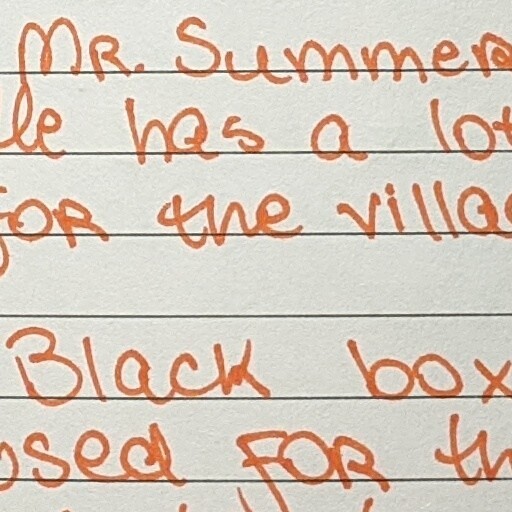 Mr. Summer
He has a lot
for the villag
Black box
osed for th